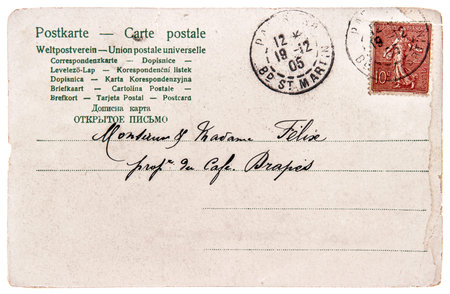 Postkarte — Carte postale
Weltpostverein — Union postale universelle
Correspondenzkarte — Dopisnice
Levelező-Lap — Korespondenční listek
Dopisnica — Karta Korespondenzyjna
Briefkaart — Cartolina Postale
Brefkort — Tarjeta Postal — Postcard
Дописна карта
ОТКРЫТОЕ ПИСЬМО
12
19-12
05
BD ST MARTIN
10
Monsieur & Madame Félix
profr du Cafe. Brapés